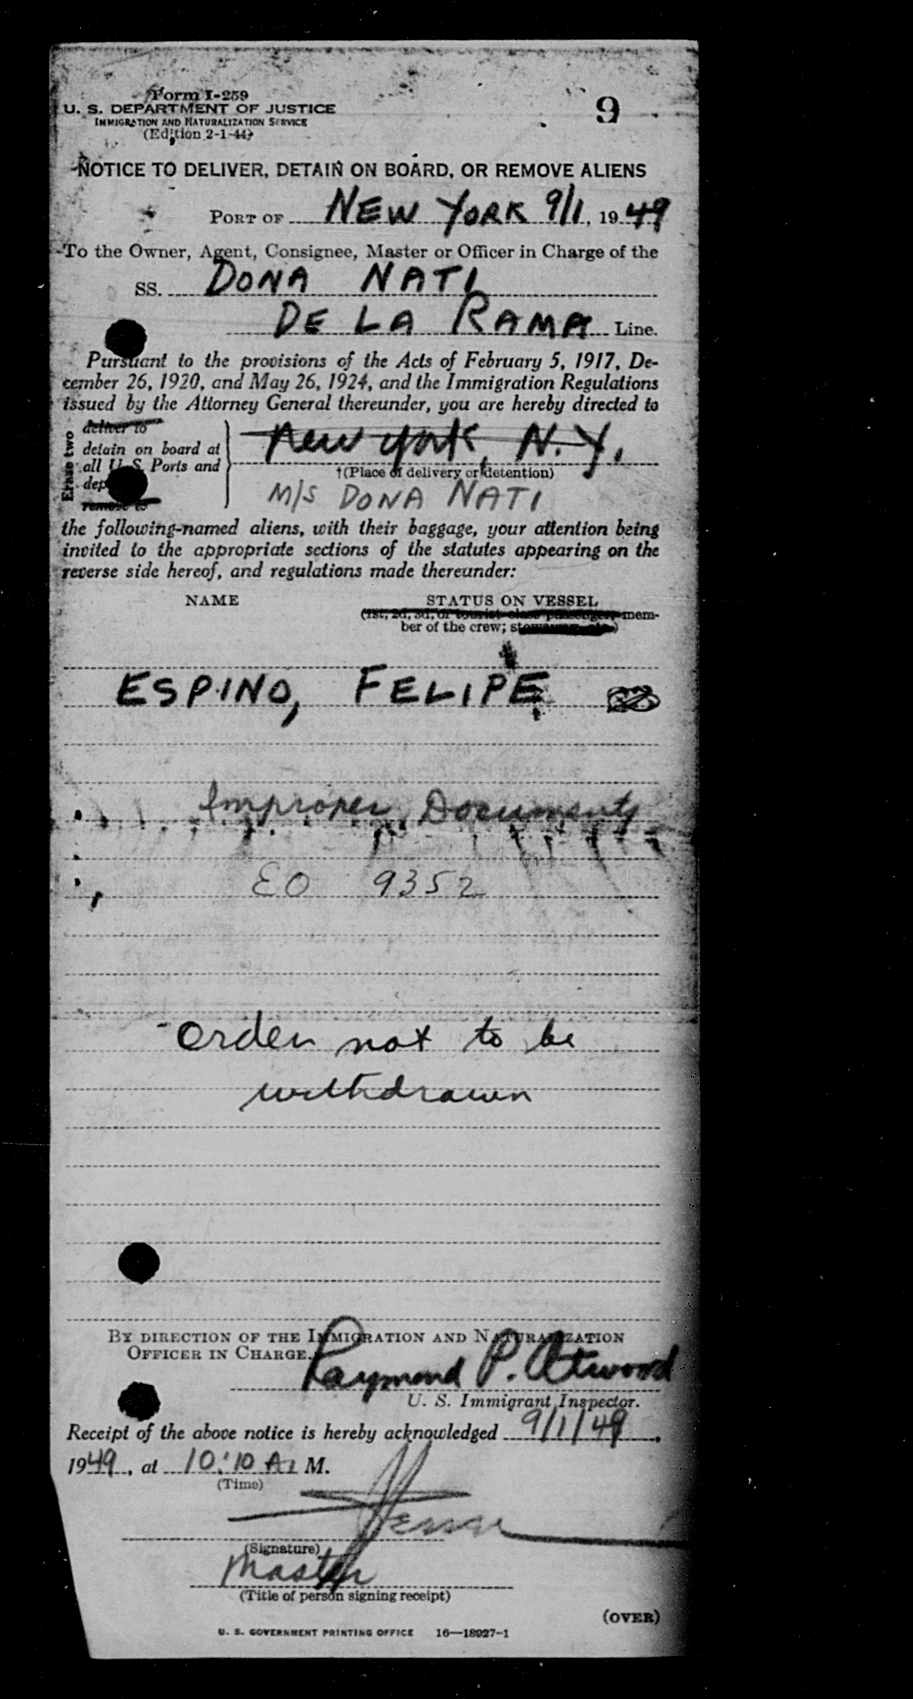 Form I-259
U. S. DEPARTMENT OF JUSTICE
IMMIGRATION AND NATURALIZATION SERVICE
(Edition 2-1-44)
9
NOTICE TO DELIVER, DETAIN ON BOARD, OR REMOVE ALIENS
PORT OF NEW YORK 9/1, 1949
To the Owner, Agent, Consignee, Master or Officer in Charge of the
SS. DONA NATI
DE LA RAMA Line.
Pursuant to the provisions of the Acts of February 5, 1917, De-
cember 26, 1920, and May 26, 1924, and the Immigration Regulations
issued by the Attorney General thereunder, you are hereby directed to
Erase two
deliver to
detain on board at
all U. S. Ports and
dep
remove to
New York, N.Y.
†(Place of delivery or detention)
M/S DONA NATI
the following-named aliens, with their baggage, your attention being
invited to the appropriate sections of the statutes appearing on the
reverse side hereof, and regulations made thereunder:
NAME STATUS ON VESSEL
(1st, 2d, 3d, or tourist class passenger, mem-
ber of the crew; stowaway, etc.)
ESPINO, FELIPE
Improper Documents
EO 9352
Order not to be
withdrawn
BY DIRECTION OF THE IMMIGRATION AND NATURALIZATION
OFFICER IN CHARGE.
Raymond P. Atwood
U. S. Immigrant Inspector.
Receipt of the above notice is hereby acknowledged 9/1/49,
1949, at 10:10 A. M.
(Time)
(Signature)
Master
(Title of person signing receipt)
(OVER)
U. S. GOVERNMENT PRINTING OFFICE 16—18927-1